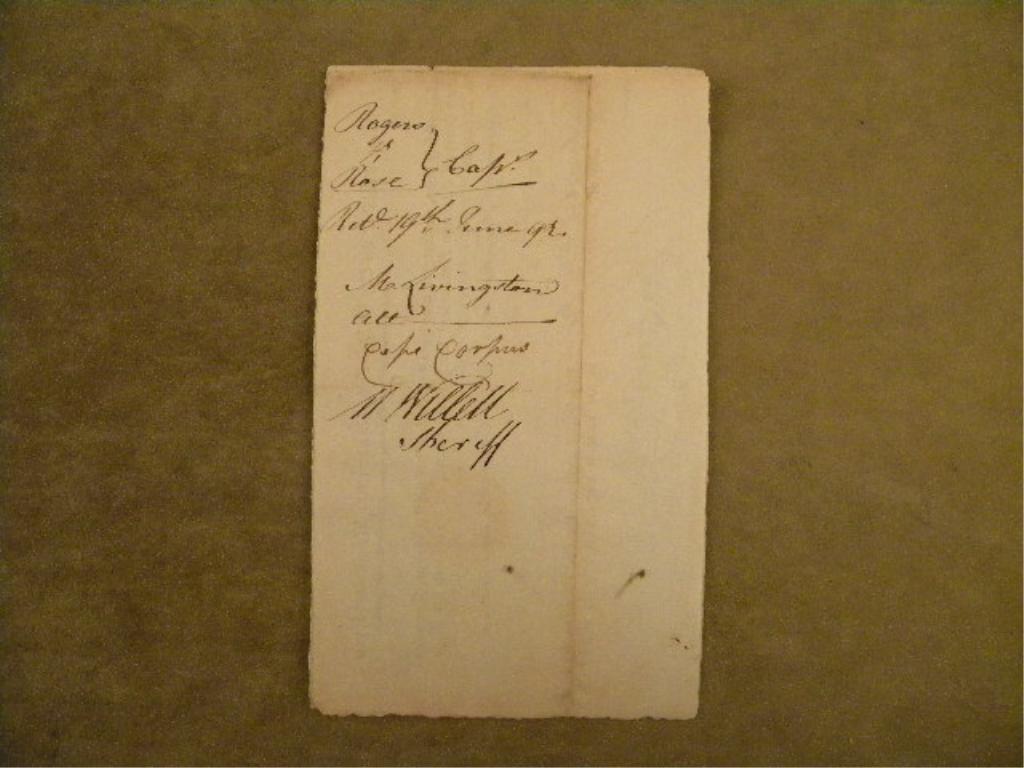 Rogers
vs
Rose } Caps.
Red. 19th June 92.
M Livingston
att
Cepi Corpus
M Willett
Sheriff